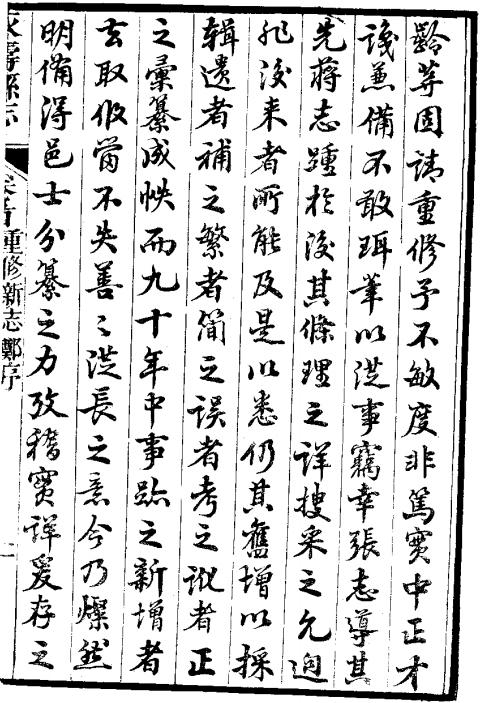 齡等固請重修予不敏度非篤實中正才
識兼備不敢珥筆以從事竊幸張志導其
先蔣志踵於後其條理之詳搜采之允迥
非後来者所能及是以悉仍其舊增以採
輯遺者補之繁者簡之誤者考之訛者正
之彙纂成帙而九十年中事蹟之新增者
去取似當不失善善從長之意今乃燦然
明備得邑士分纂之力攷稽實詳爰存之
重修新志鄭序